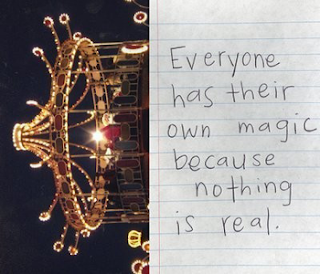 Everyone
has their
own magic
because
nothing
is real.